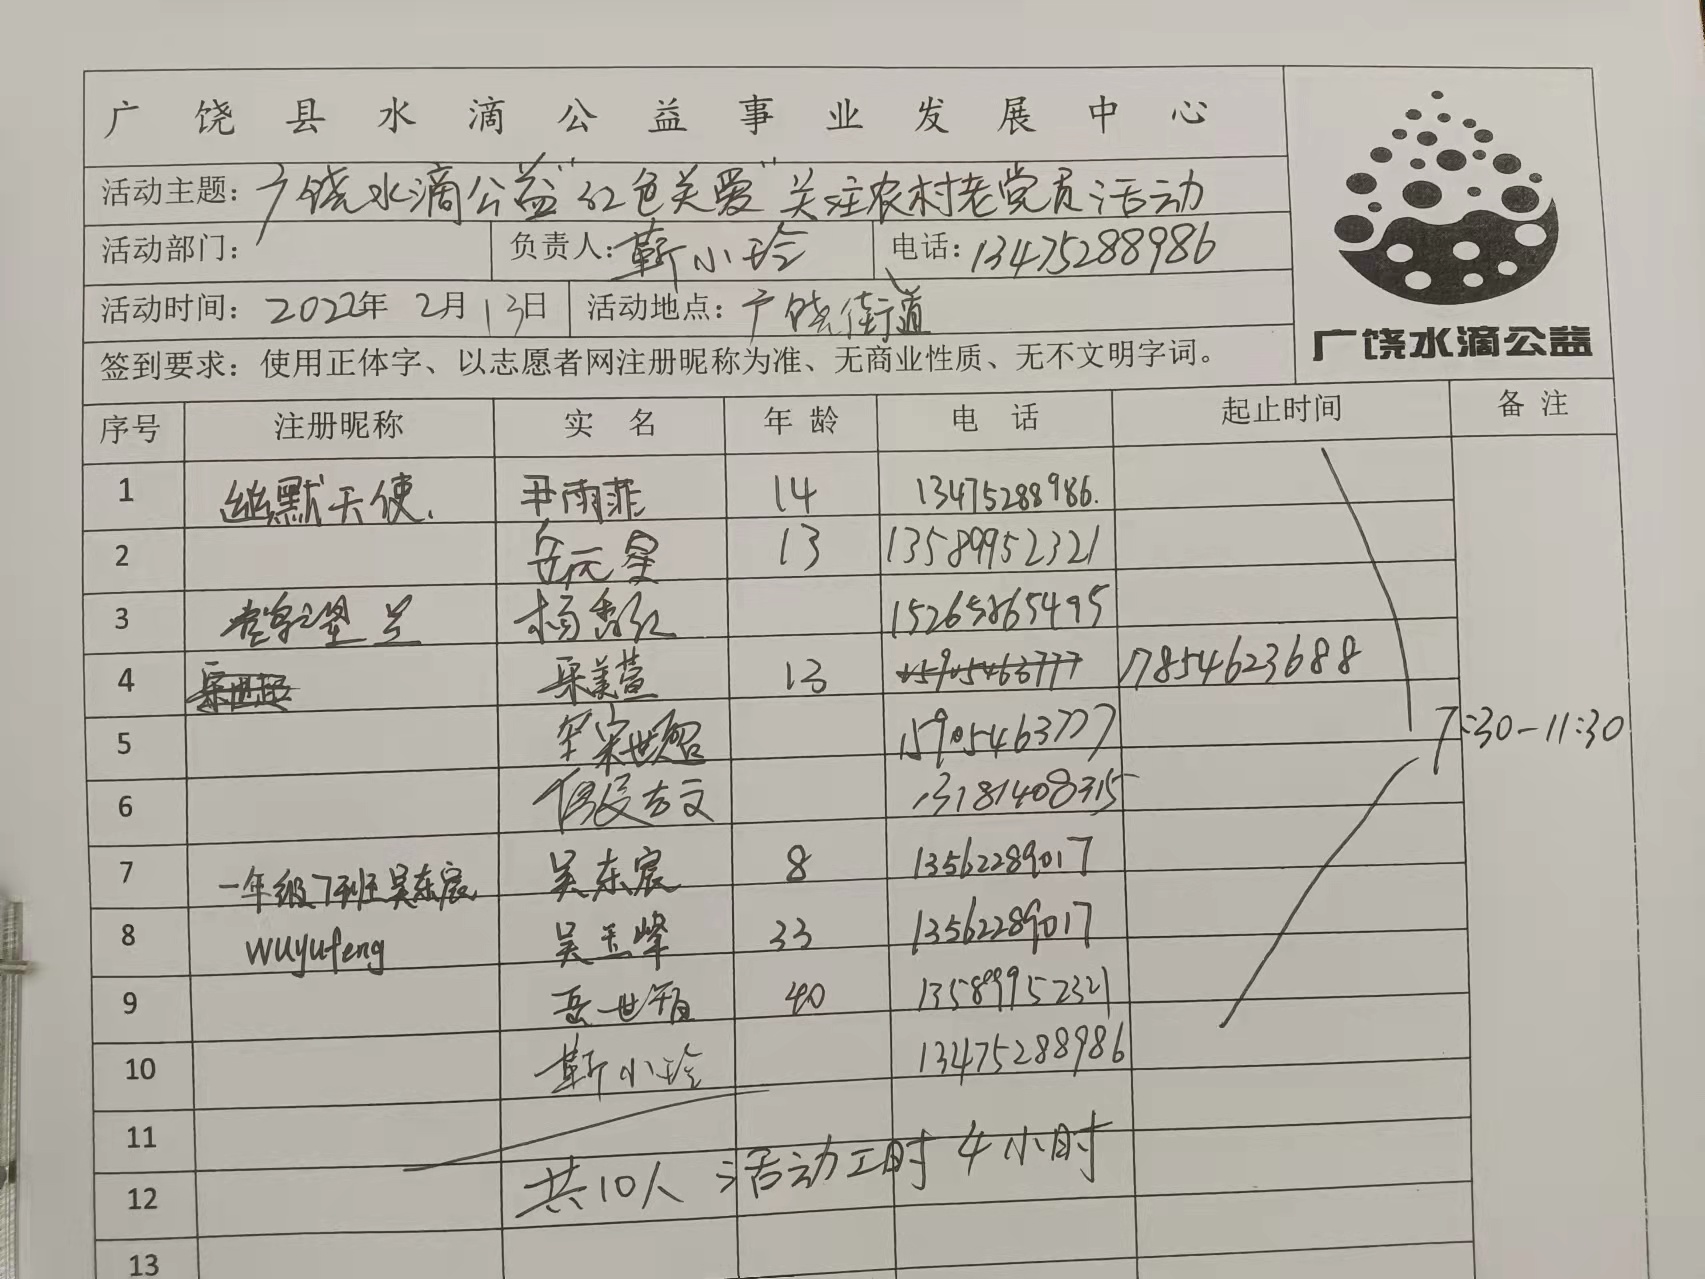 广饶县水滴公益事业发展中心
活动主题：广饶水滴公益"红色关爱"关注农村老党员活动
活动部门： 负责人：靳小玲 电话：13475288986
活动时间：2022年2月13日 活动地点：广饶街道
签到要求：使用正体字、以志愿者网注册昵称为准、无商业性质、无不文明字词。
广饶水滴公益
序号 注册昵称 实名 年龄 电话 起止时间 备注
1 幽默天使. 尹雨菲 14 13475288986.
2 岳沅星 13 13589952321
3 杨秀红 15265865495
4 13 15905463777 17854623688
5 15905463777
7:30-11:30
6 13181408315
7 一年级7班吴东宸 吴东宸 8 13562289017
8 wuyufeng 吴玉峰 33 13562289017
9 岳世有 40 13589952321
10 靳小玲 13475288986
11
12 共10人 活动工时4小时
13